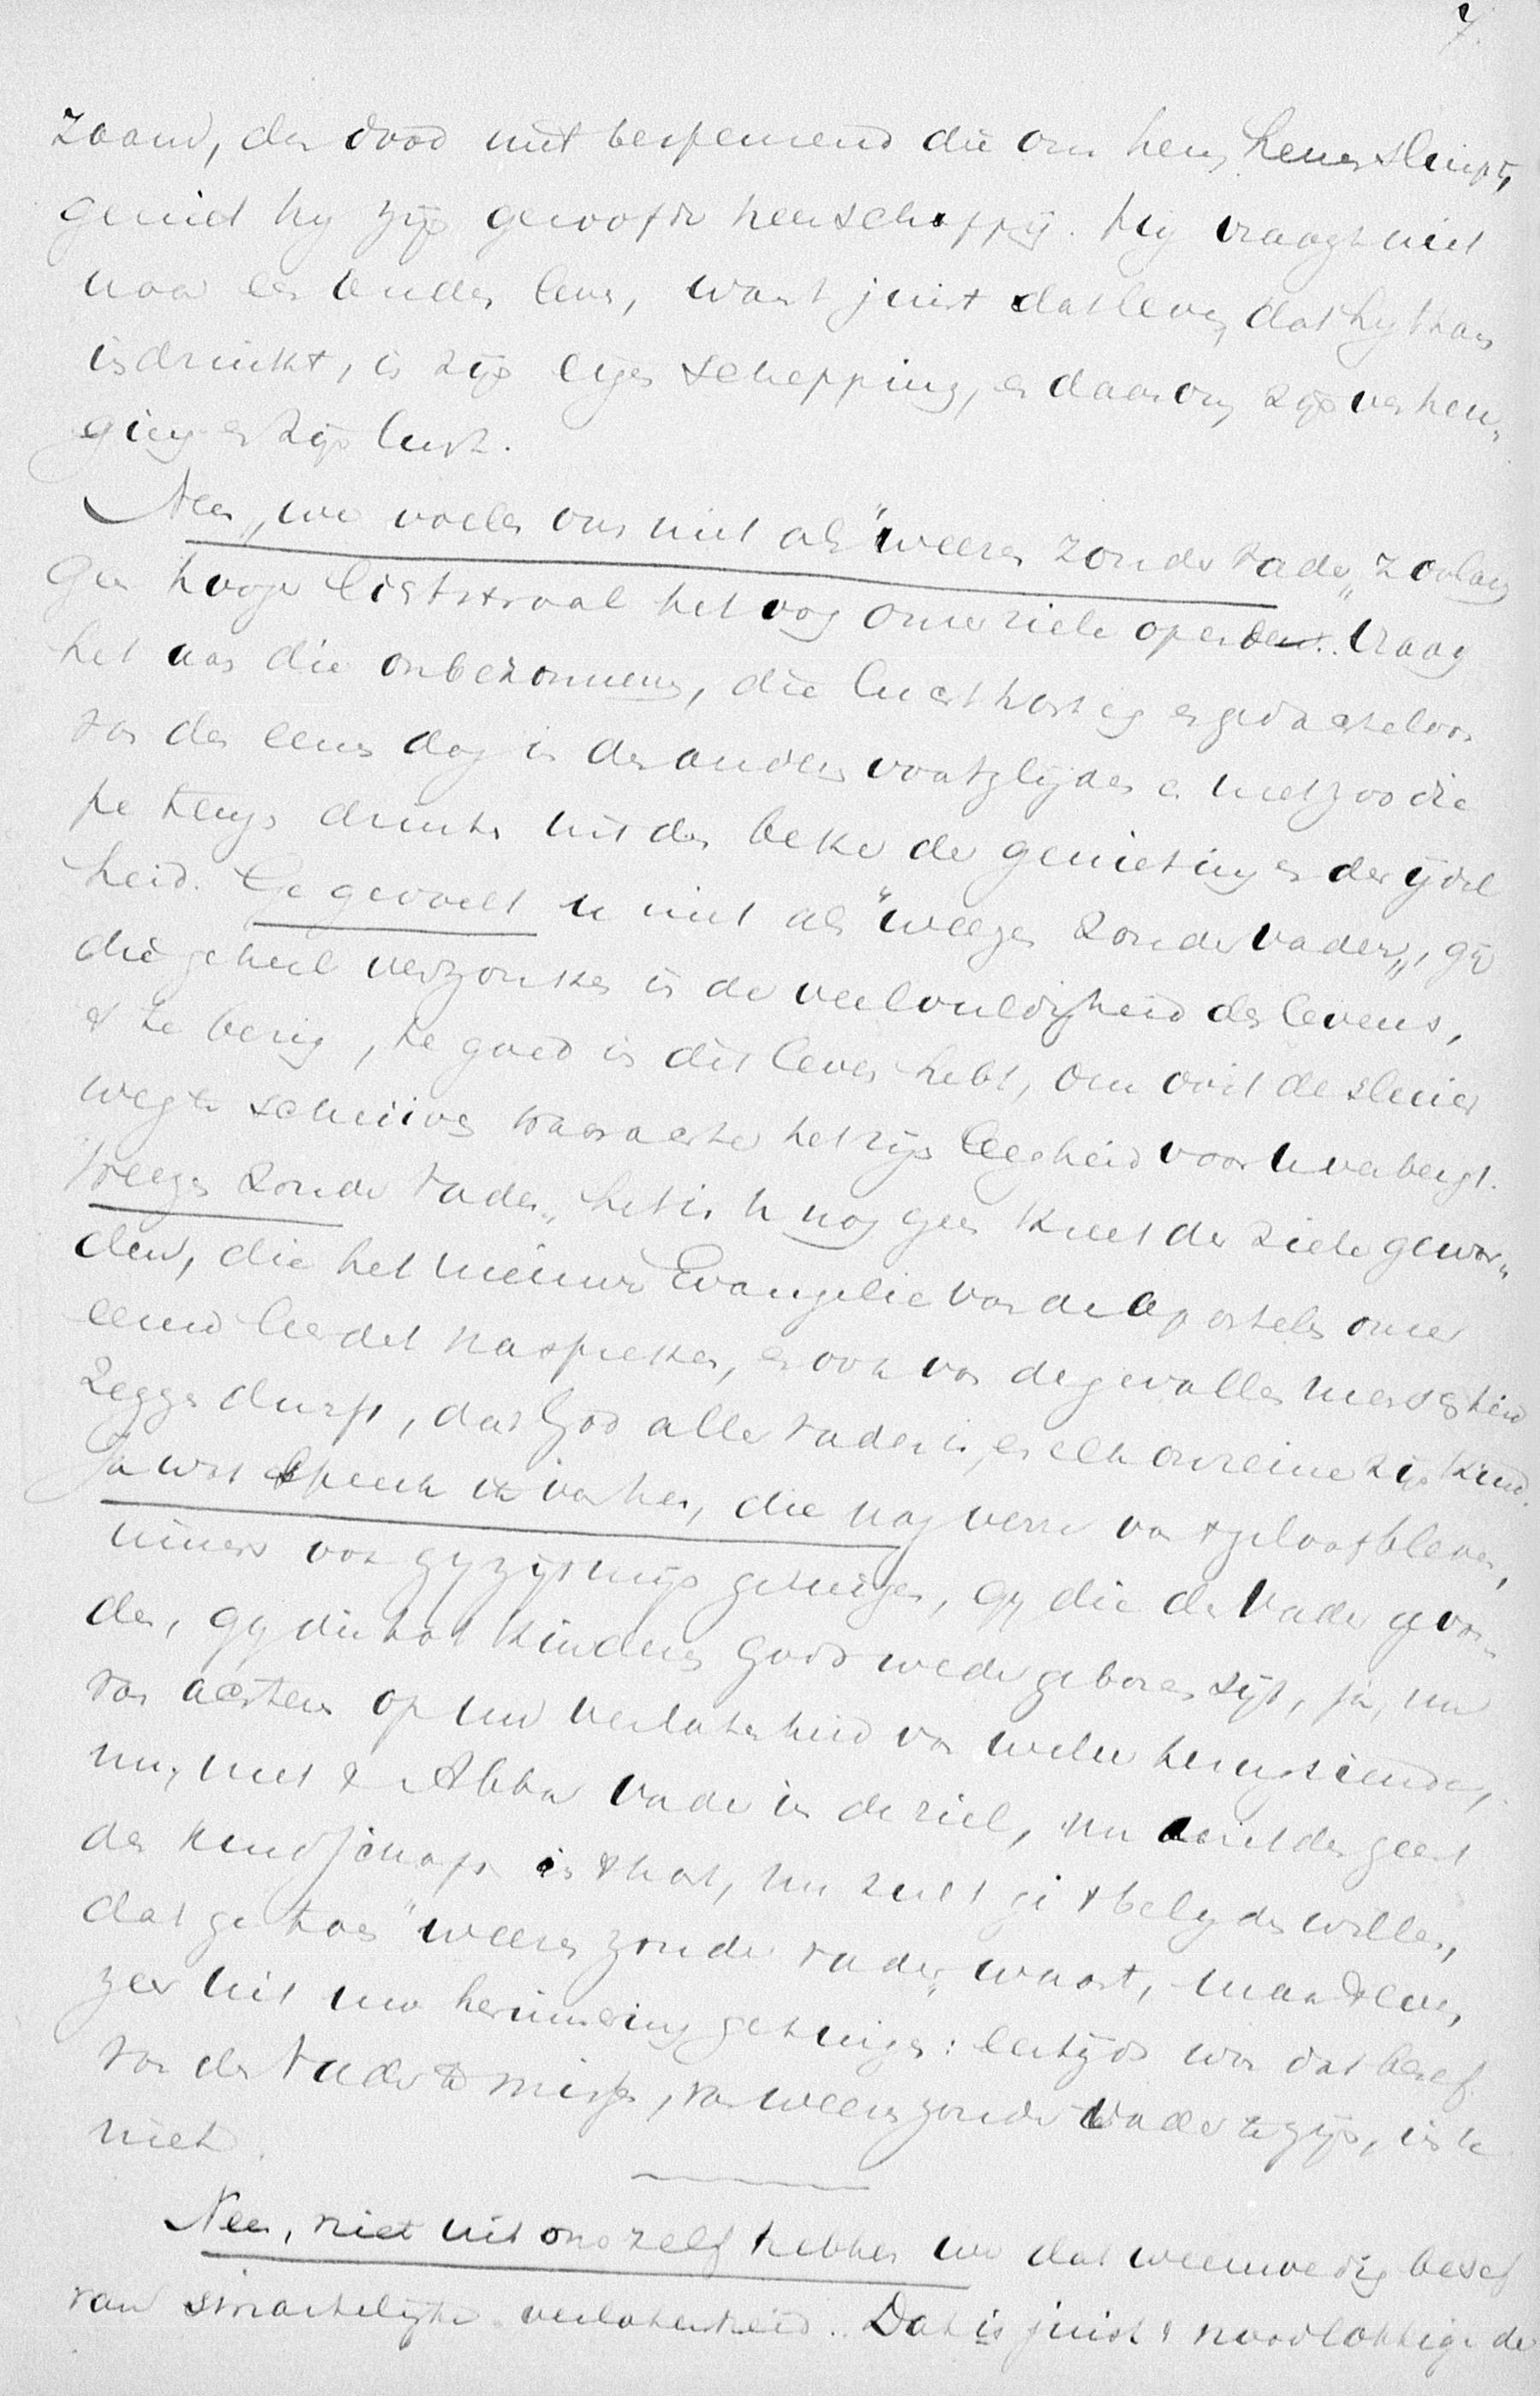 7.
zaam, den dood niet bespeurend die om hem henen sluipt,
geniet hij zijn geroofde heerschappij. Hij vraagt niet
naar een ander leven, want juist dat leven, dat hij thans
indrinkt, is zijn eigen schepping, en daarom zijn verheu-
ging en zijn lust.
Neen, we voelen ons niet als "weezen zonder Vader" zoolang
geen hooger lichtstraal het oog onzer ziele opende. Vraag
het aan die onbezonnenen, die luchthartig en gedachteloos
van den eenen dag in den anderen voortglijden en met
teugs drinken uit den beker der genieting en der ijdel
heid. Ge gevoelt u niet als "weezen zonder Vader", gij
die geheel verzonken in de veelvuldigheid des levens,
't te bezig, te goed in dit leven hebt, om ooit de sluier
weg te schuiven waarachter het zijn leegheid voor u verbergt.
Weezen zonder Vader" het is u nog geen kreet der ziele gewor-
den, die het nieuwe Evangelie van de apostelen onzer
eeuw liet naspreken, en ook van de gevallen menschheid
zeggen durft, dat God aller Vader is, en elk onreine zijn kind.
Ja wat spreek ik van hen, die nog verre van 't geloof bleven,
immers ook gij zijt mijn getuigen, gij die den Vader gevon-
den, gij die tot kinderen Gods wedergeboren zijt, ja, nu
van achteren op uw verlatenheid van weleer terugziende,
nu, met 't Abba Vader in de ziel, nu uit den geest
des kindschaps in 't hart, nu zult gij 't belijden willen,
dat ge toen "weezen zonder Vader" waart, maar tevens
zeer uit uw herinnering getuigen: eertijds was dat besef
van den Vader te missen, van weezen zonder Vader te zijn, in u
niet.
Neen, niet uit ons zelf hebben we dat weemoedig besef
van smachtelijke verlatenheid. Dat is juist 't noodlottige der